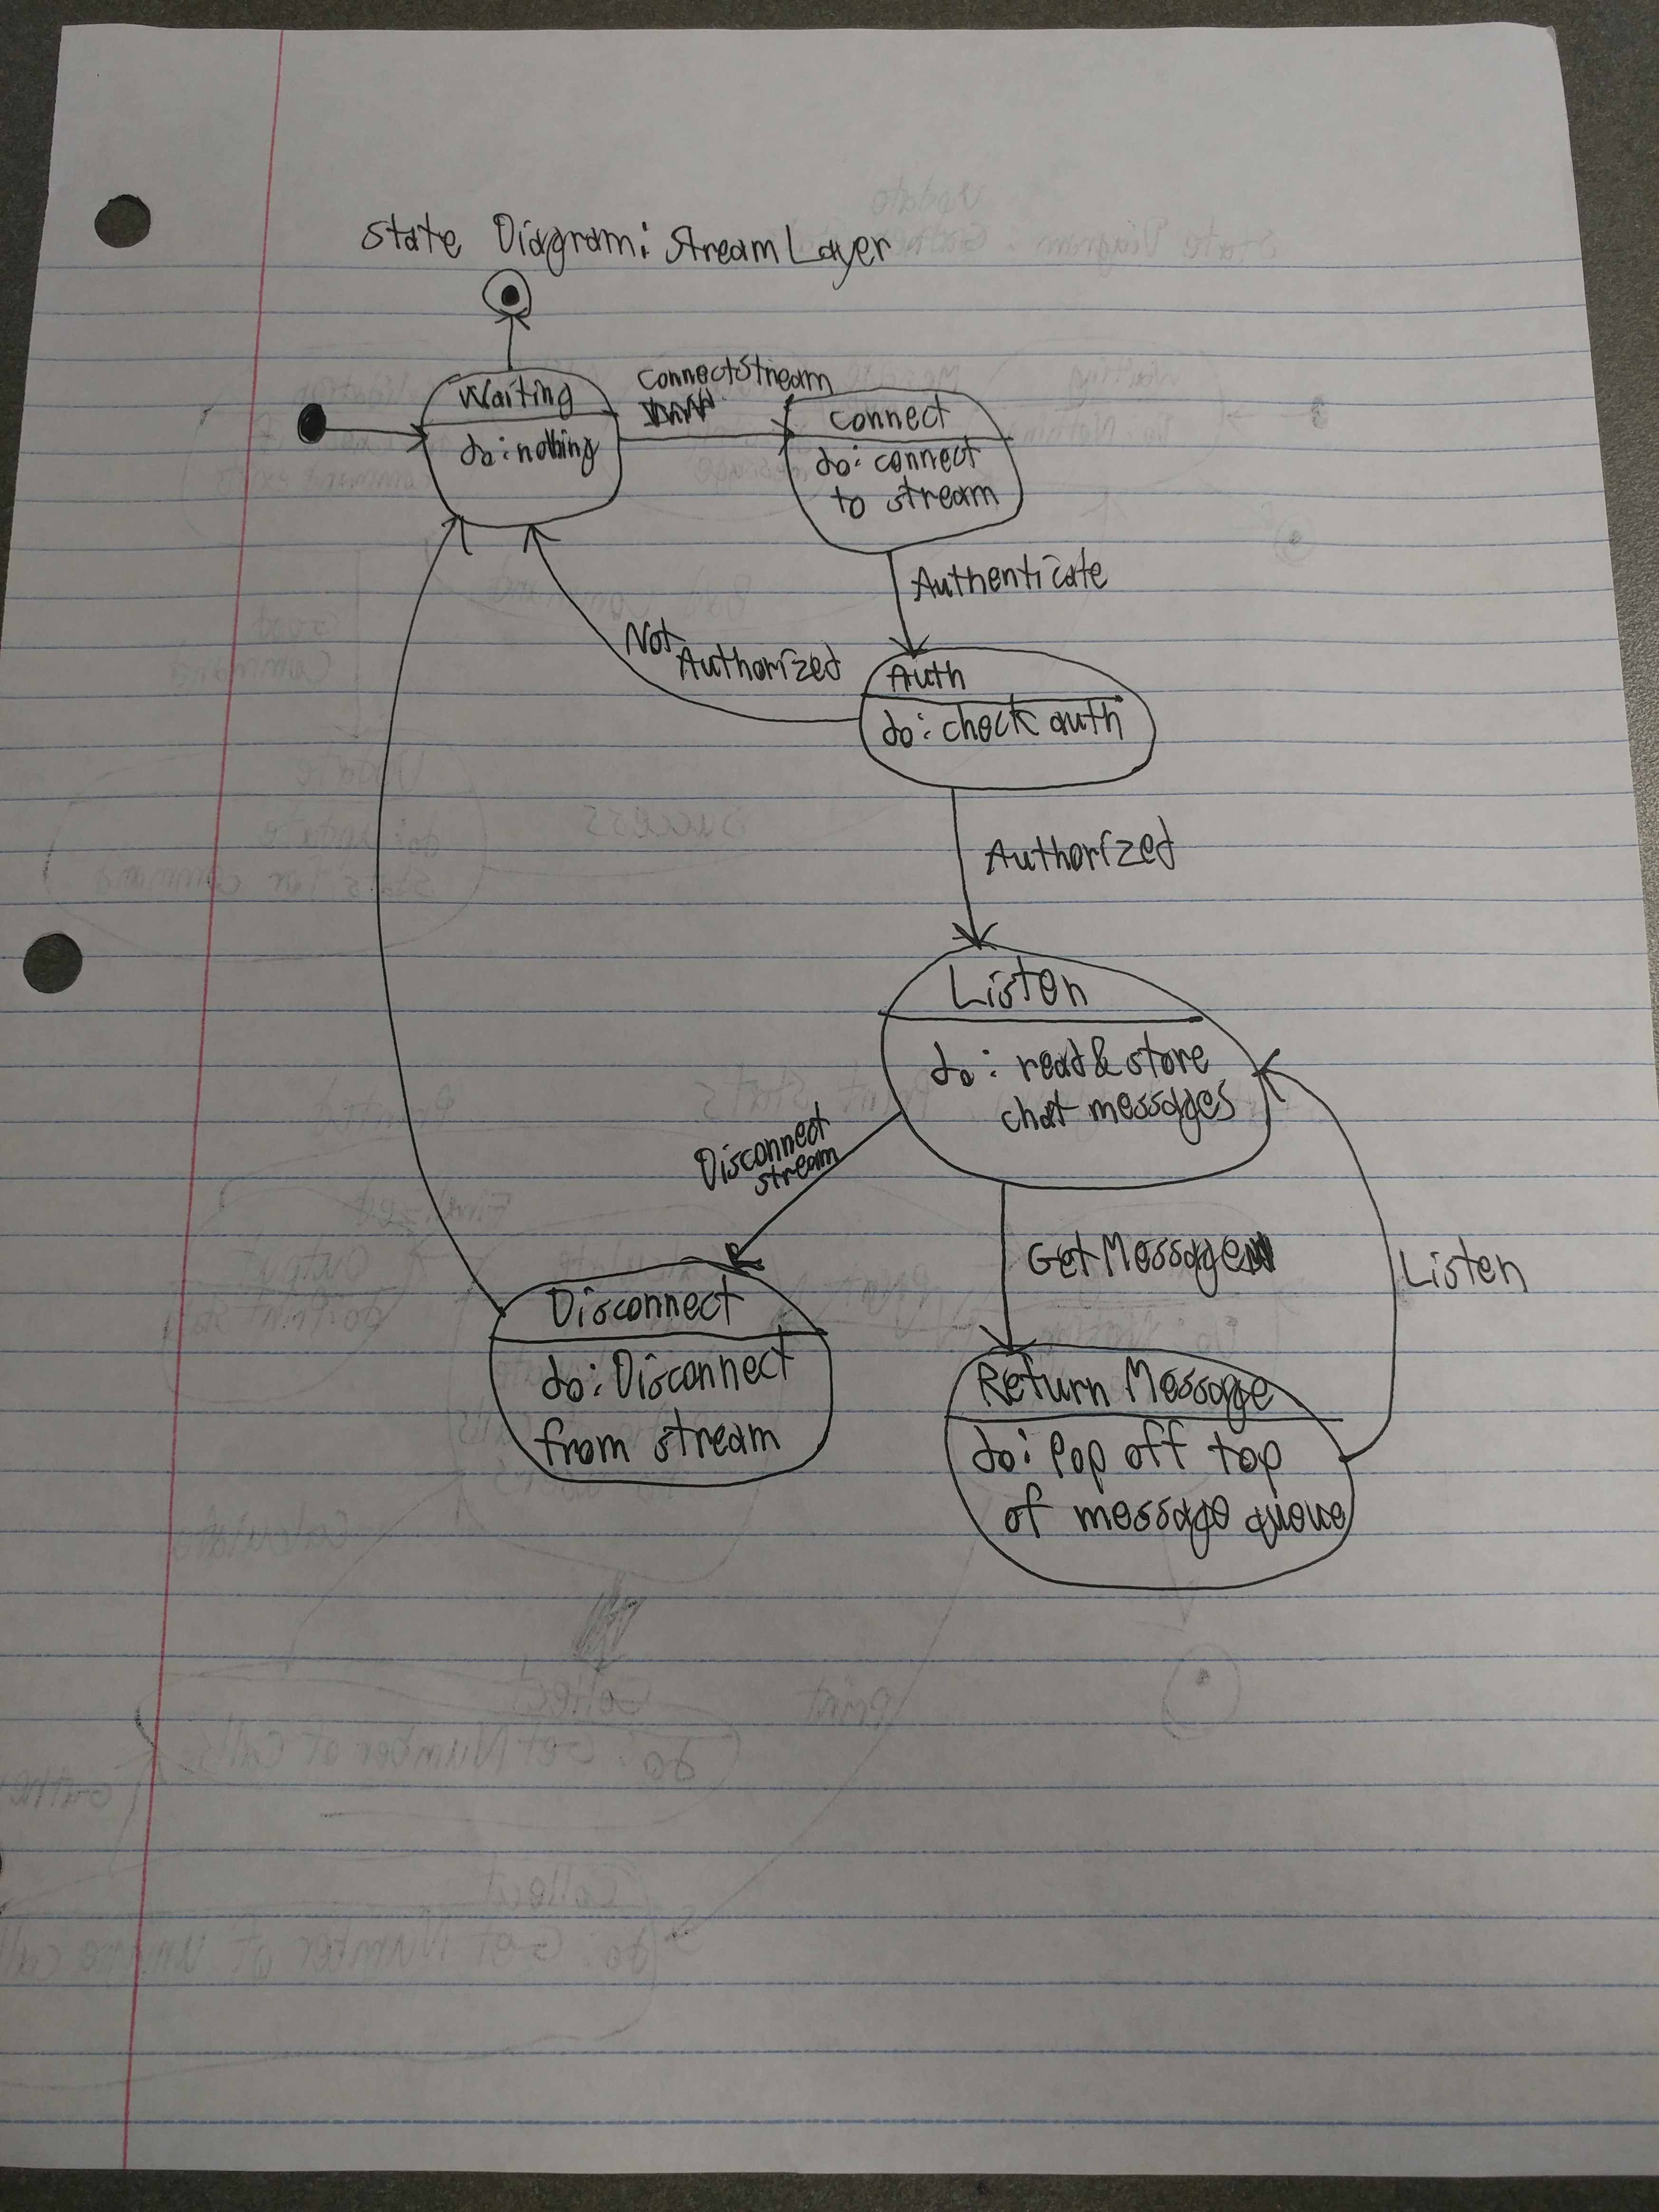 State Diagram: Stream Layer
Waiting
do: nothing
ConnectStream
connect
do: connect
to stream
Authenticate
Not
Authorized
Auth
do: check auth
Authorized
Listen
do: read & store
chat messages
Disconnect
stream
GetMessage
Listen
Disconnect
do: Disconnect
from stream
Return Message
do: Pop off top
of message queue